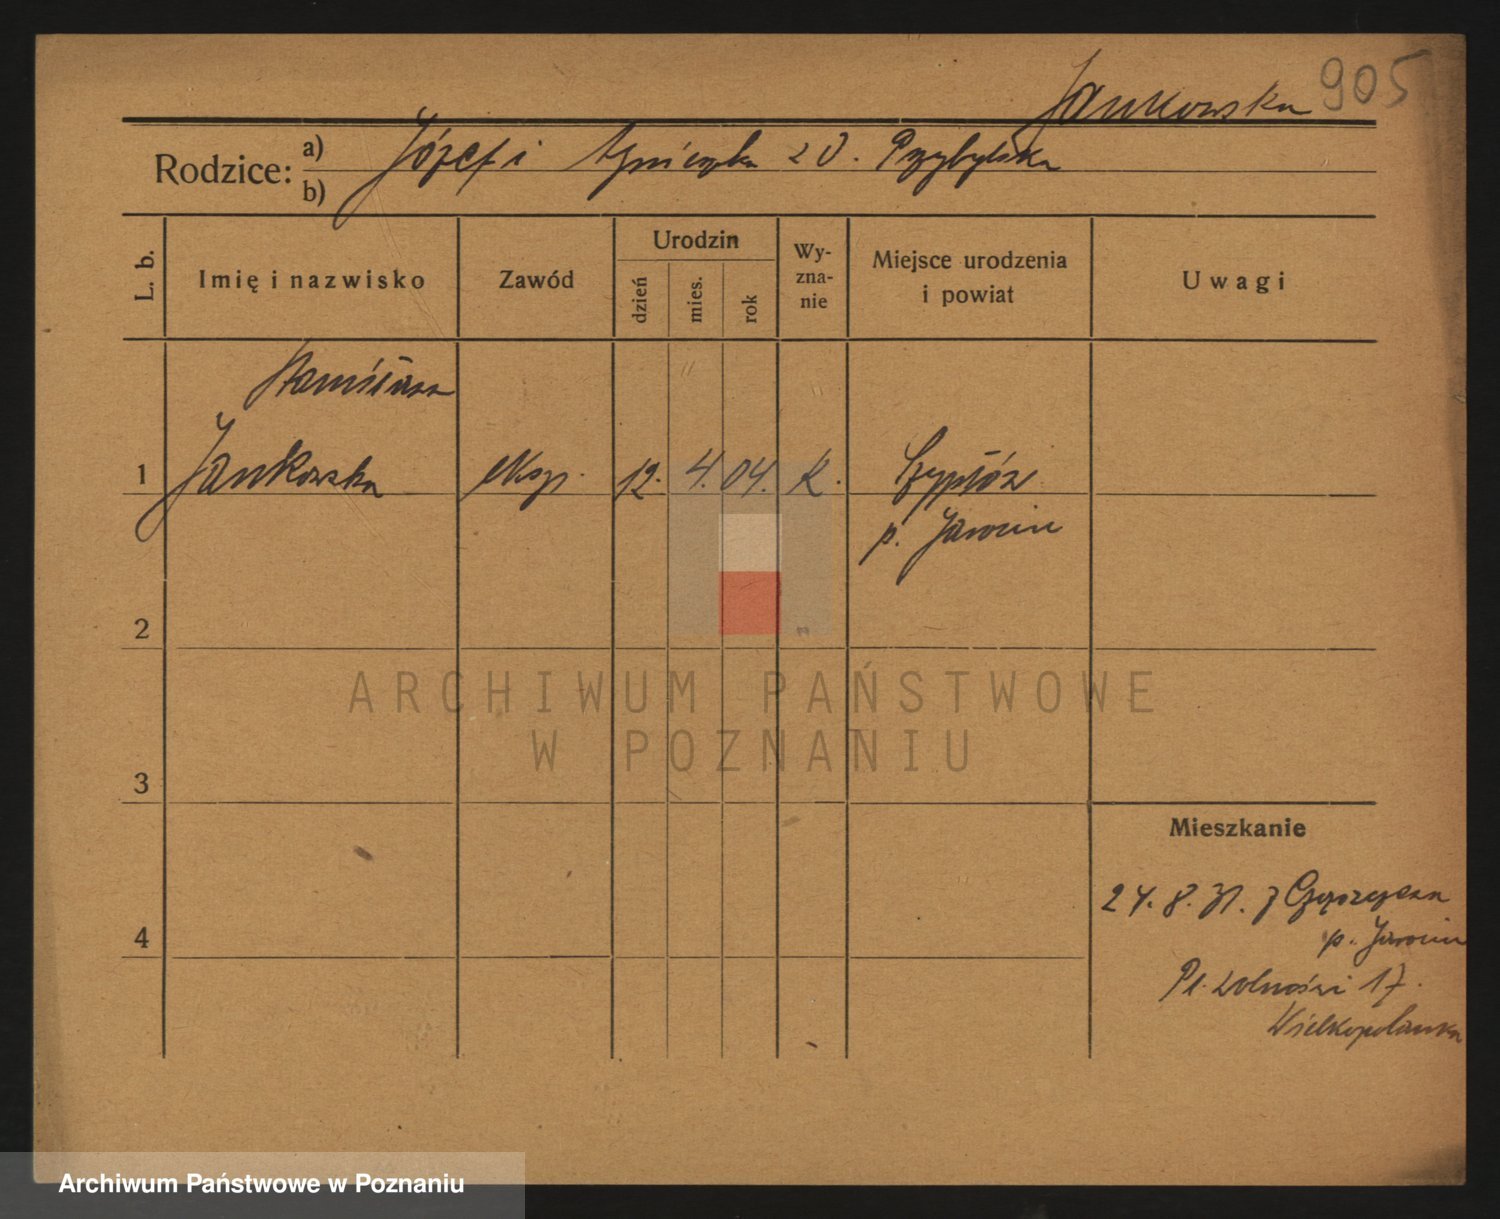 Jankowska 905
Rodzice: a) Józef i Agnieszka z d. Przybylska
b)
L. b.
Imię i nazwisko
Zawód
Urodzin
dzień
mies.
rok
Wy-
zna-
nie
Miejsce urodzenia
i powiat
Uwagi
Stanisława
1 Jankowska eksp. 12. 4. 04. k. Szypłów
p. Jarocin
2
3
4
Mieszkanie
24. 8. 31. z
p. Jarocin
Pl. Wolności 17.
Wielkopolanka
ARCHIWUM PAŃSTWOWE
W POZNANIU
Archiwum Państwowe w Poznaniu